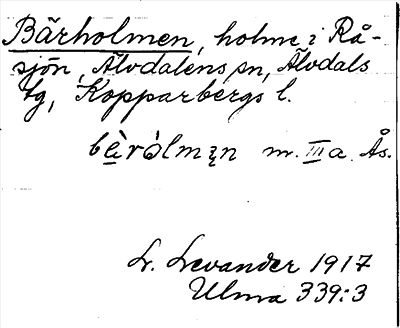 Bärholmen, holme i Rå-
sjön, Älvdalens sn, Älvdals
tg, Kopparbergs l.
bèrólmęn m. III a. Ås.
L. Levander 1917
Ulma 339:3